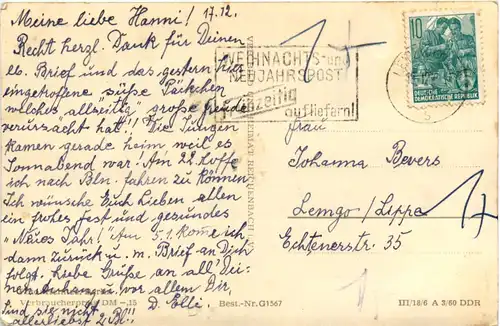 Meine liebe Hanni! 17.12.
Recht herzl. Dank für Deinen
lb. Brief und das gestern hier
eingetroffene süße Päckchen
welches allseitig große Freude
verursacht hat!! Die Jungen
kamen gerade heim weil es
Sonnabend war! Am 22. hoffe
ich nach Bln. fahren zu können
Ich wünsche Euch Lieben allen
ein frohes Fest und gesundes
"Neues Jahr!" Am 5.1. kome ich
dann zurück u. m. Brief an Dich
folgt. Liebe Grüße an all' Dei-
vor allem Dir,
und sei
allerliebst
D. Elli.
WEIHNACHTS- und
NEUJAHRSPOST
frühzeitig
aufliefern!
10
DEUTSCHE
DEMOKRATISCHE REPUBLIK
REICHENBACH
Frau
Johanna Bevers
Lemgo/Lippe
Echternerstr. 35
Verbraucherpreis DM -,15
Best.-Nr. G1567
III/18/6 A 3/60 DDR